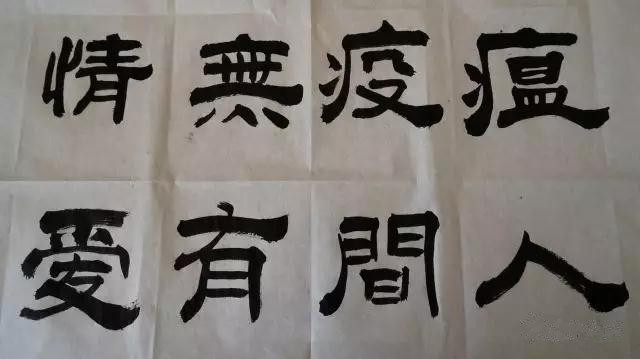 瘟疫無情
人間有愛